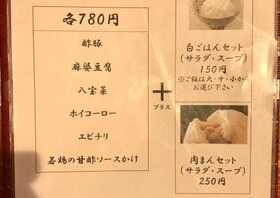 各780円
酢豚
麻婆豆腐
八宝菜
ホイコーロー
エビチリ
若鶏の甘酢ソースかけ
＋
プラス
白ごはんセット
(サラダ・スープ)
150円
※ご飯は大・中・小から
お選び下さい
肉まんセット
(サラダ・スープ)
250円